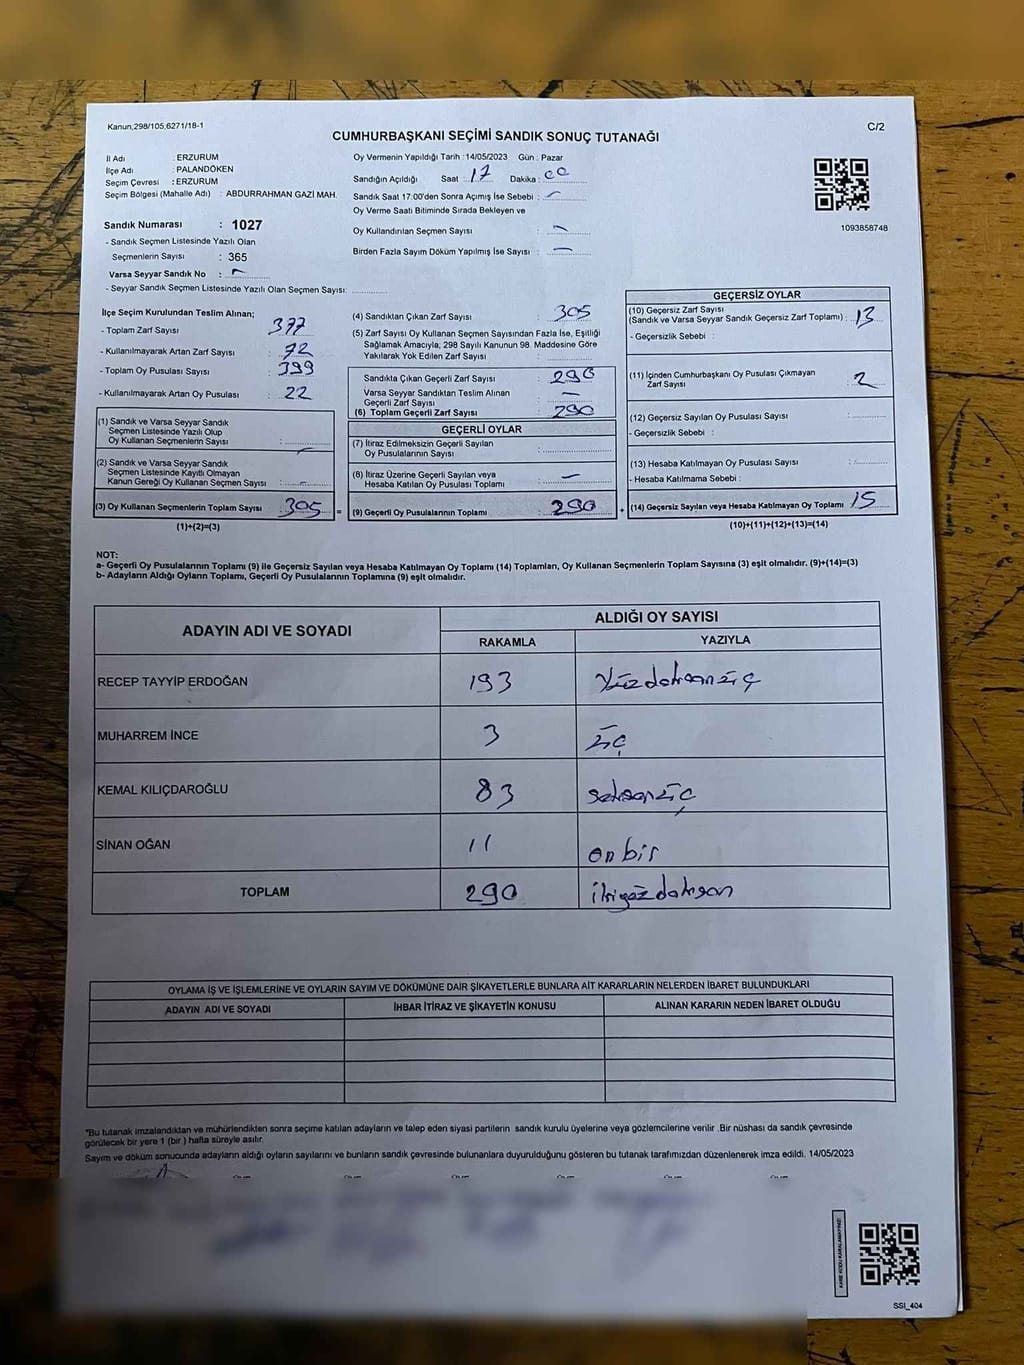 Kanun,298/105,6271/18-1
C/2
CUMHURBAŞKANI SEÇİMİ SANDIK SONUÇ TUTANAĞI
İl Adı : ERZURUM
İlçe Adı : PALANDÖKEN
Seçim Çevresi : ERZURUM
Seçim Bölgesi (Mahalle Adı) : ABDURRAHMAN GAZİ MAH.
Oy Vermenin Yapıldığı Tarih :14/05/2023 Gün : Pazar
Sandığın Açıldığı Saat : 17 Dakika : 00
Sandık Saat 17.00'den Sonra Açımış İse Sebebi : –
Oy Verme Saati Bitiminde Sırada Bekleyen ve
Oy Kullandırılan Seçmen Sayısı : –
Birden Fazla Sayım Döküm Yapılmış İse Sayısı : –
1093858748
Sandık Numarası : 1027
- Sandık Seçmen Listesinde Yazılı Olan
Seçmenlerin Sayısı : 365
Varsa Seyyar Sandık No : –
- Seyyar Sandık Seçmen Listesinde Yazılı Olan Seçmen Sayısı:
İlçe Seçim Kurulundan Teslim Alınan;
- Toplam Zarf Sayısı : 377
- Kullanılmayarak Artan Zarf Sayısı : 72
- Toplam Oy Pusulası Sayısı : 399
- Kullanılmayarak Artan Oy Pusulası : 22
(1) Sandık ve Varsa Seyyar Sandık
Seçmen Listesinde Yazılı Olup
Oy Kullanan Seçmenlerin Sayısı :
(2) Sandık ve Varsa Seyyar Sandık
Seçmen Listesinde Kayıtlı Olmayan
Kanun Gereği Oy Kullanan Seçmen Sayısı : –
(3) Oy Kullanan Seçmenlerin Toplam Sayısı : 305
(1)+(2)=(3)
(4) Sandıktan Çıkan Zarf Sayısı : 305
(5) Zarf Sayısı Oy Kullanan Seçmen Sayısından Fazla İse, Eşitliği
Sağlamak Amacıyla; 298 Sayılı Kanunun 98. Maddesine Göre
Yakılarak Yok Edilen Zarf Sayısı :
Sandıkta Çıkan Geçerli Zarf Sayısı : 290
Varsa Seyyar Sandıktan Teslim Alınan
Geçerli Zarf Sayısı : –
(6) Toplam Geçerli Zarf Sayısı : 290
GEÇERLİ OYLAR
(7) İtiraz Edilmeksizin Geçerli Sayılan
Oy Pusulalarının Sayısı :
(8) İtiraz Üzerine Geçerli Sayılan veya
Hesaba Katılan Oy Pusulası Toplamı : –
= (9) Geçerli Oy Pusulalarının Toplamı : 290 +
GEÇERSİZ OYLAR
(10) Geçersiz Zarf Sayısı
(Sandık ve Varsa Seyyar Sandık Geçersiz Zarf Toplamı) : 13
- Geçersizlik Sebebi :
(11) İçinden Cumhurbaşkanı Oy Pusulası Çıkmayan
Zarf Sayısı : 2
(12) Geçersiz Sayılan Oy Pusulası Sayısı :
- Geçersizlik Sebebi :
(13) Hesaba Katılmayan Oy Pusulası Sayısı :
- Hesaba Katılmama Sebebi :
(14) Geçersiz Sayılan veya Hesaba Katılmayan Oy Toplamı : 15
(10)+(11)+(12)+(13)=(14)
NOT:
a- Geçerli Oy Pusulalarının Toplamı (9) ile Geçersiz Sayılan veya Hesaba Katılmayan Oy Toplamı (14) Toplamları, Oy Kullanan Seçmenlerin Toplam Sayısına (3) eşit olmalıdır. (9)+(14)=(3)
b- Adayların Aldığı Oyların Toplamı, Geçerli Oy Pusulalarının Toplamına (9) eşit olmalıdır.
ADAYIN ADI VE SOYADI
ALDIĞI OY SAYISI
RAKAMLA YAZIYLA
RECEP TAYYİP ERDOĞAN 193 Yüzdoksanüç
MUHARREM İNCE 3 üç
KEMAL KILIÇDAROĞLU 83 seksenüç
SİNAN OĞAN 11 onbir
TOPLAM 290 ikiyüzdoksan
OYLAMA İŞ VE İŞLEMLERİNE VE OYLARIN SAYIM VE DÖKÜMÜNE DAİR ŞİKAYETLERLE BUNLARA AİT KARARLARIN NELERDEN İBARET BULUNDUKLARI
ADAYIN ADI VE SOYADI İHBAR İTİRAZ VE ŞİKAYETİN KONUSU ALINAN KARARIN NEDEN İBARET OLDUĞU
*Bu tutanak imzalandıktan ve mühürlendikten sonra seçime katılan adayların ve talep eden siyasi partilerin sandık kurulu üyelerine veya gözlemcilerine verilir .Bir nüshası da sandık çevresinde
görülecek bir yere 1 (bir ) hafta süreyle asılır.
Sayım ve döküm sonucunda adayların aldığı oyların sayılarını ve bunların sandık çevresinde bulunanlara duyurulduğunu gösteren bu tutanak tarafımızdan düzenlenerek imza edildi. 14/05/2023
KARE KODU KARALAMAYINIZ!
SSI_404